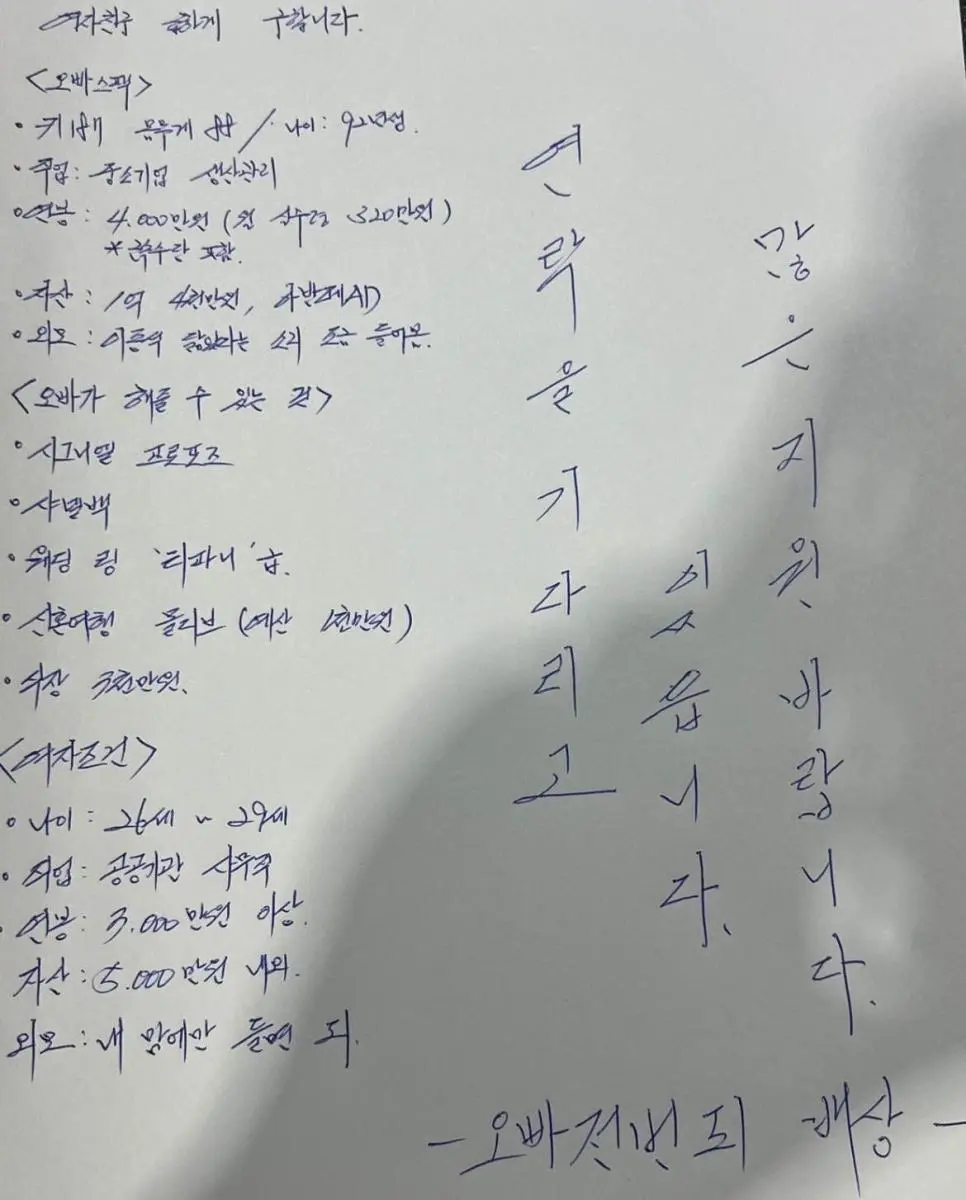 여자친구 급하게 구합니다.
<오빠스펙>
• 키 187 몸무게 88 / 나이: 92년생.
• 직업: 중소기업 생산관리
• 연봉: 4.000만원 (월 실수령 320만원)
* 특수란 포함.
• 자산: 1억 4천만원, 아반떼AD
• 외모: 이준혁 닮았다는 소리 조금 들어봄.
<오빠가 해줄 수 있는 것>
• 시그니엘 프로포즈
• 샤넬백
• 웨딩 링 '티파니' 급.
• 신혼여행 몰디브 (예산 1천만원)
• 식장 3천만원.
<여자조건>
• 나이: 26세 ~ 29세
• 직업: 공공기관 사무직
• 연봉: 3.000만원 이상.
자산: 5.000만원 내외.
외모: 내 맘에만 들면 되.
연락을 기다리고
있읍니다.
많은 지원 바랍니다.
- 오빠전번되 배상 -